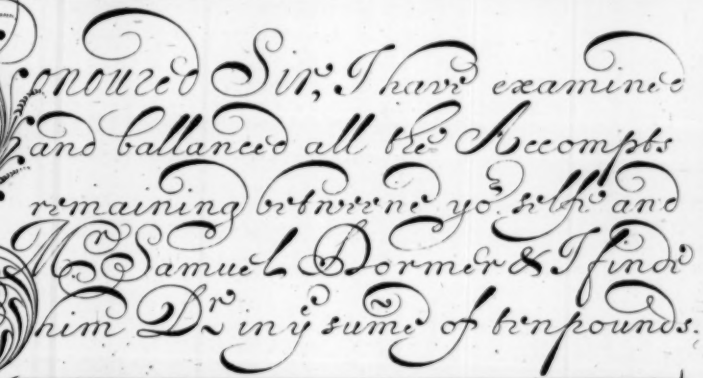 onoured Sir, I have examined
and ballanced all the Accompts
remaining betweene yo.r selfe and
Mr. Samuel Dormer & I finde
him Dr. in ye sume of tenpounds.